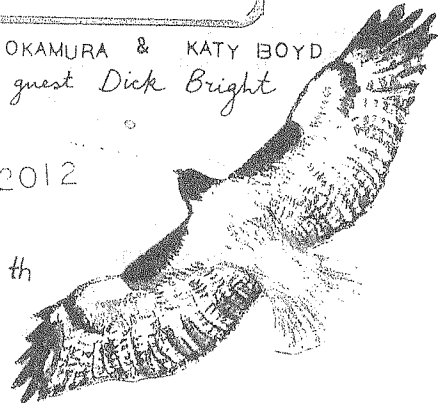 OKAMURA & KATY BOYD
guest Dick Bright
2012
th